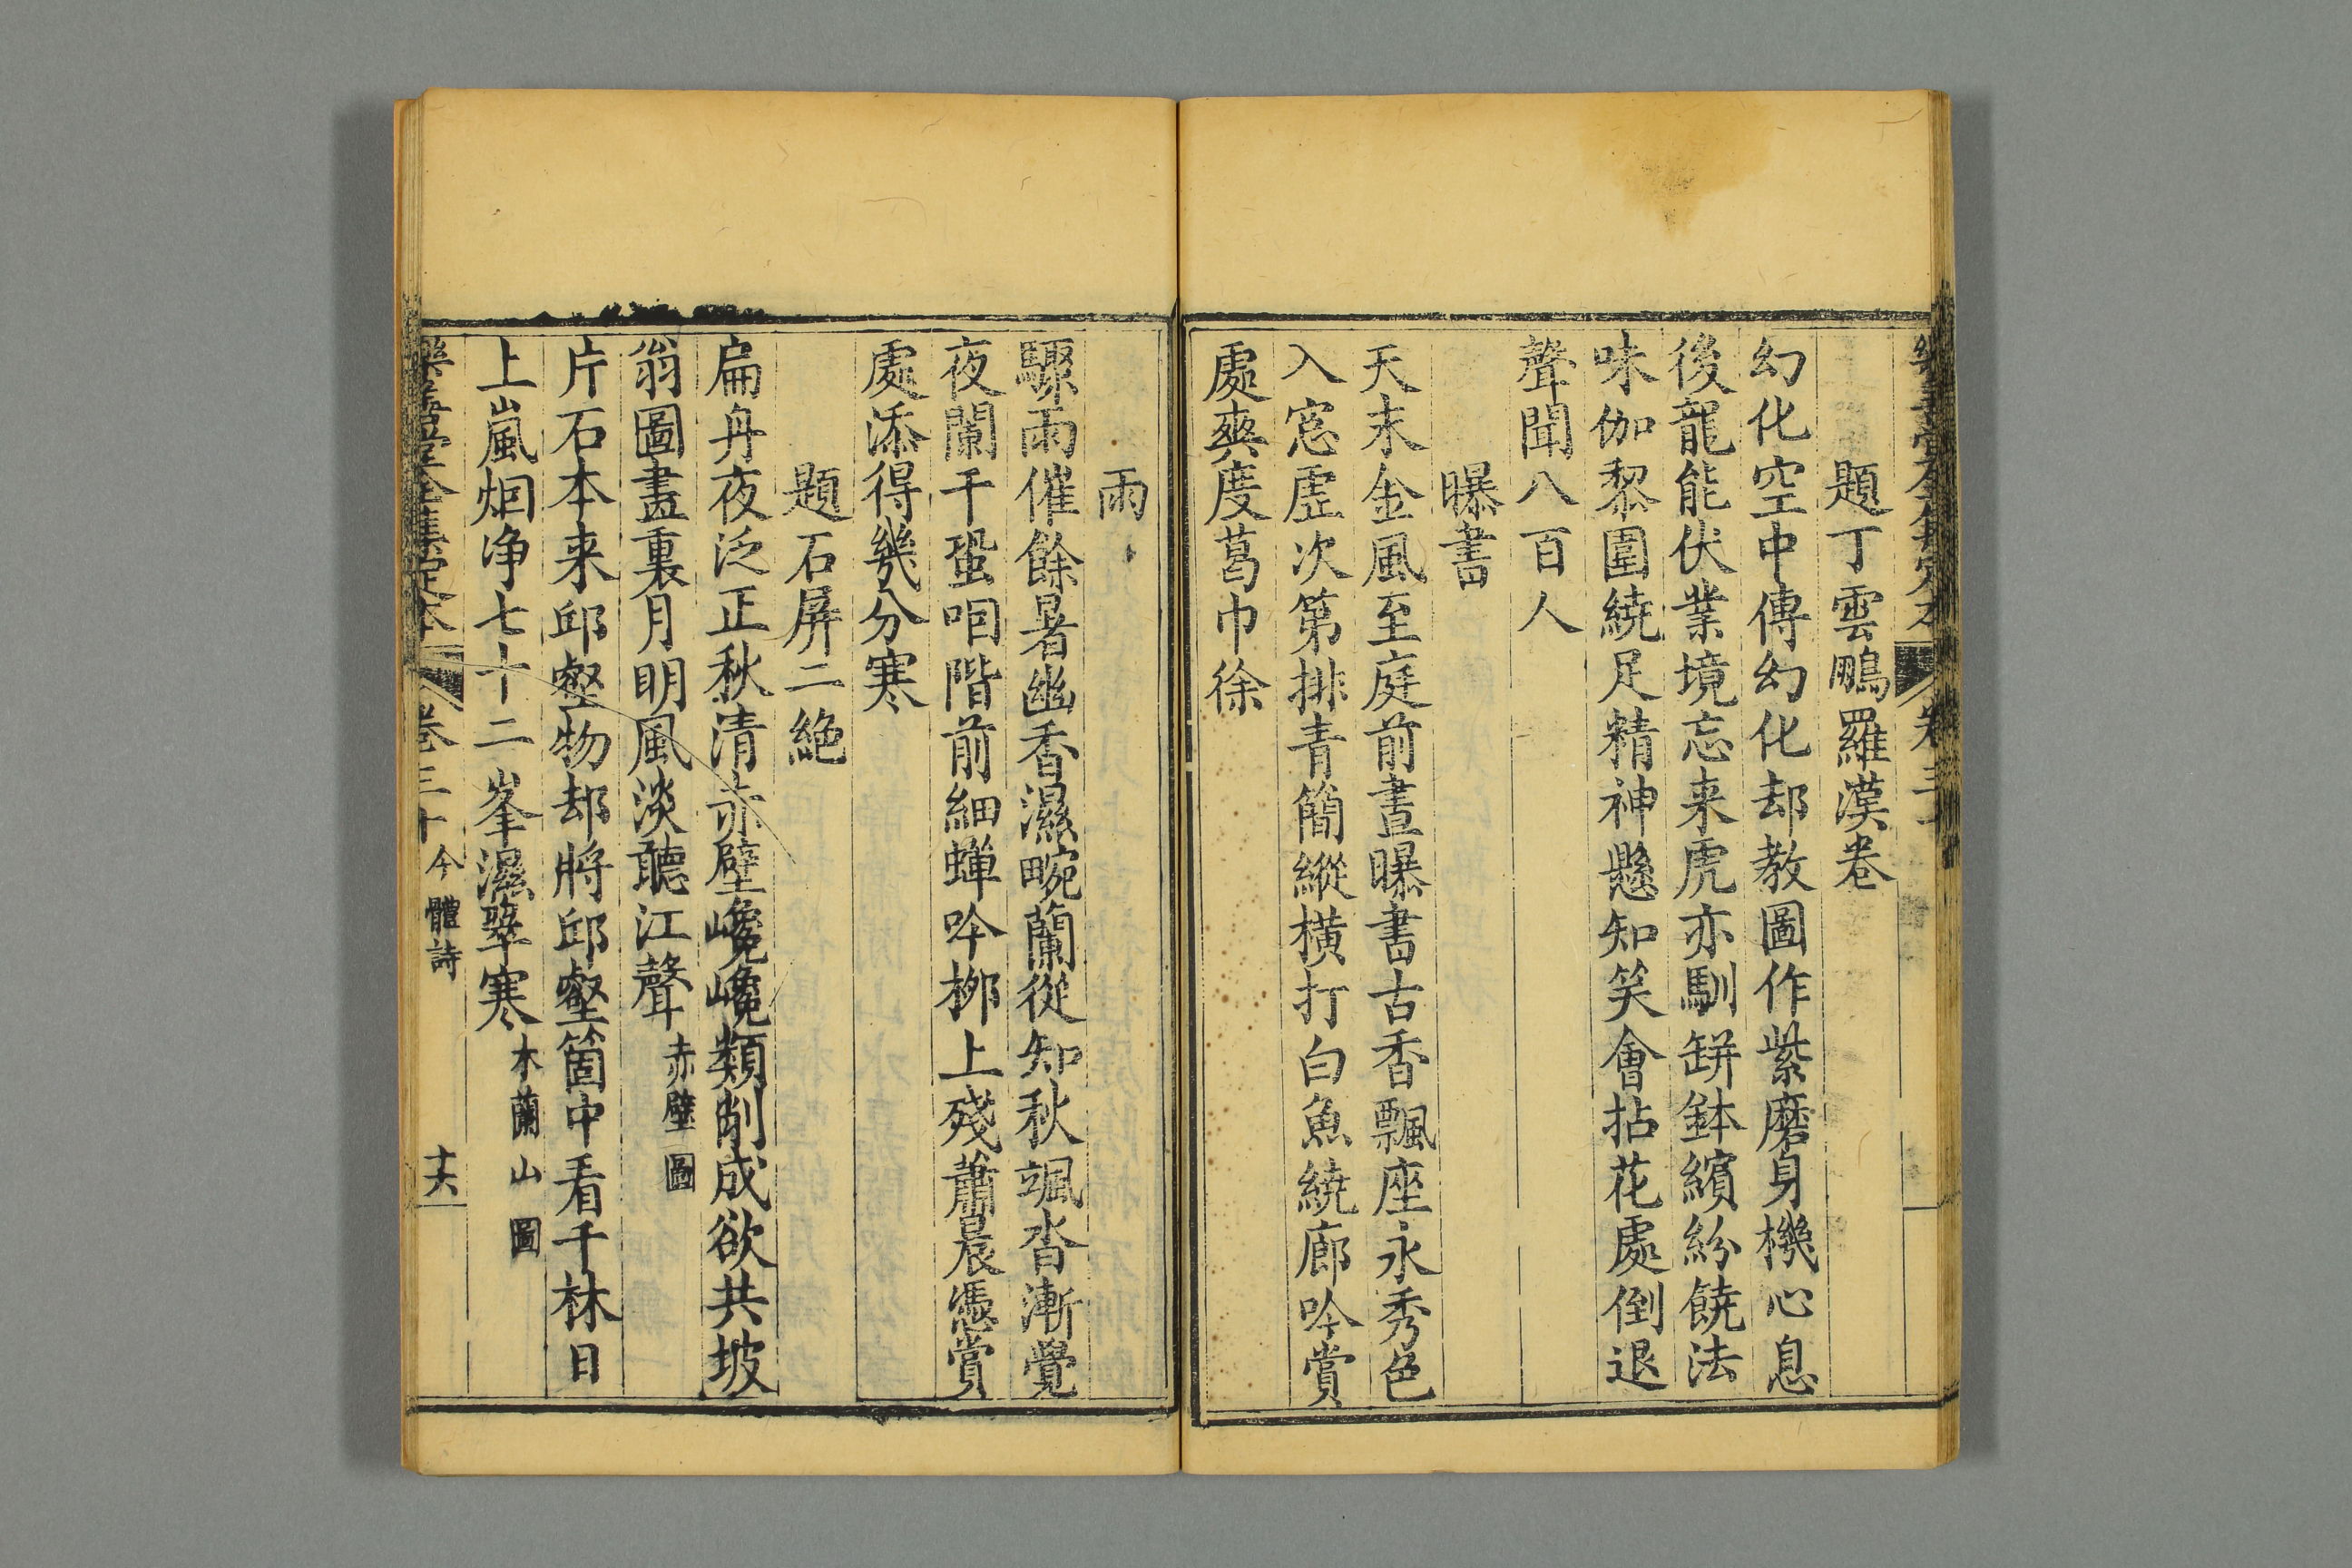 題丁雲鵬羅漢卷
幻化空中傳幻化却教圖作紫磨身機心息
後龍能伏業境忘来虎亦馴缾鉢繽紛饒法
味伽黎圍繞足精神懸知笑會拈花處倒退
聲聞八百人
曝書
天末金風至庭前晝曝書古香飄座永秀色
入窓虛次第排青簡縱橫打白魚繞廊吟賞
處爽度葛巾徐
雨
驟雨催餘暑幽香濕畹蘭從知秋颯沓漸覺
夜闌干蛩咽階前細蟬吟栁上殘蕭晨憑賞
處添得幾分寒
題石屏二絶
扁舟夜泛正秋清赤壁巉巉類削成欲共坡
翁圖畫裏月明風淡聽江聲赤壁圖
片石本来邱壑物却將邱壑箇中看千林日
上嵐烟净七十二峯濕翠寒木蘭山圖
樂善堂全集定本 卷三十 今體詩 十六